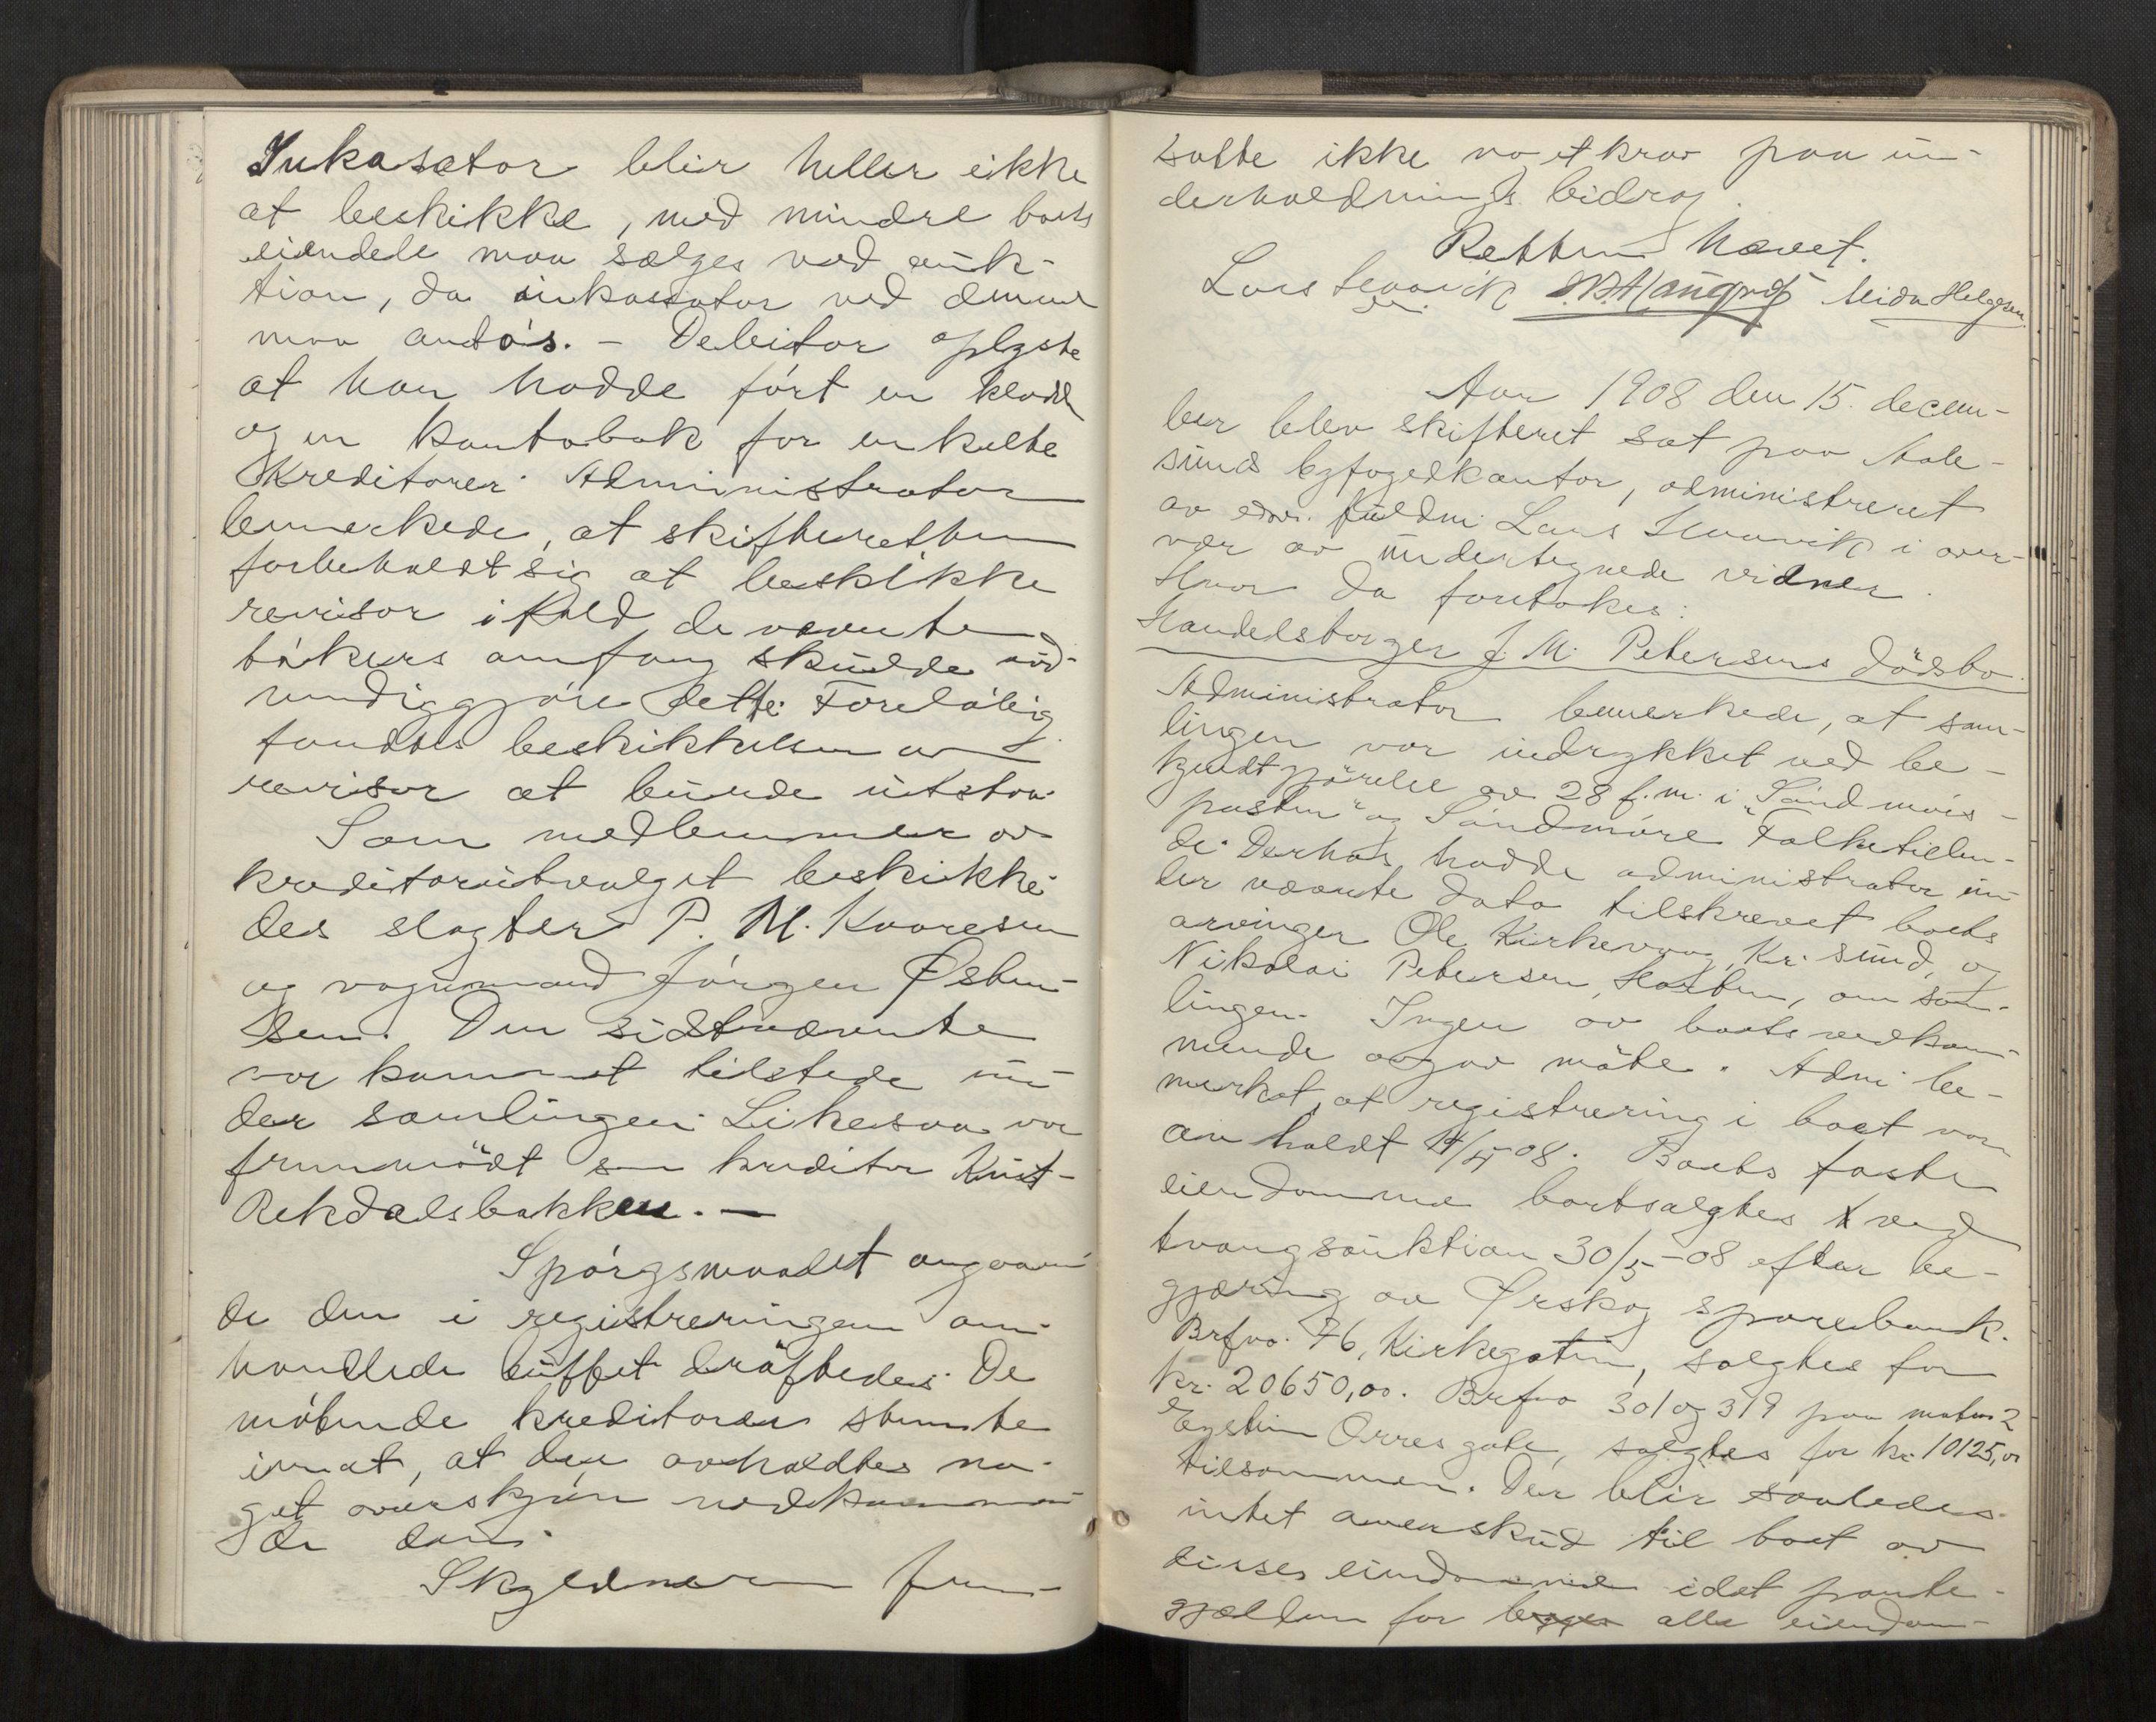 Inkasator blir heller ikke
at beskikke, med mindre boets
eiendele maa sælges ved auk-
tion, da inkassator ved denne
maa antás. - Debitor oplyste
at han hadde ført en kladd
og en kontobok for enkelte
kreditorer. Administrator
bemerkede, at skifteretten
forbeholdt sig at beskikke
revisor ifald de nævnte
bøkers omfang skulde nød-
vendiggjøre dette. Foreløbig
fandtes beskikkelsen av
revisor at burde utstaa.
Som medlemmer av
kreditorutvalget beskikke-
des slagter P. M. Kaaresen
og vognmand Jørgen Østen-
sen. Den sidstnævnte
var kommet tilstede un-
der samlingen. Likesaa var
fremmødt som kreditor Knut
Rekdalsbakken. -
Spørgsmaalet angaaen-
de den i registreringen om-
handlede buffet drøftedes. De
møtende kreditorer stemte
imot, at der avholdtes no-
get overskjøn vedkommen-
de den.
Skyldneren frem-
satte ikke noget krav paa un-
derholdnings bidrag.
Retten hævet.
Lars Hevik Mida Helgesen
Aar 1908 den 15. decem-
ber blev skifteret sat paa Aale-
sunds byfogedkontor, administreret
av edsv. fuldm. Lars i over-
vær av undertegnede vidner.
Hvor da foretokes:
Handelsborger J. M. Petersens dødsbo.
Administrator bemerkede, at sam-
lingen var indrykket ved be-
kjendtgjørelse av 28 f. m. i "Søndmørs-
posten" og Søndmøre Folketiden-
de. Derhos hadde administrator un-
der nævnte dato tilskrevet boets
arvinger Ole Kirkevaag, Kr. sund, og
Nikolai Petersen, Horten, om sam-
lingen. Ingen av boets vedkom-
mende avgav møte. Adm. be-
merket, at registrering i boet var
avholdt 08. Boets faste
eiendomme bortsalgtes ved
tvangsauktion 30/5-08 efter be-
gjæring av Ørskog sparebank.
Brfno. 76, Kirkegaten, solgtes for
kr. 20650,00. Brfno 301 og 319 paa matr. 2
Eystein Orres gate, solgtes for kr. 10125,00
tilsammen. Der blir saaledes
intet overskud til boet av
disse eiendomme idet pante-
gjælden for begge alle eiendom-